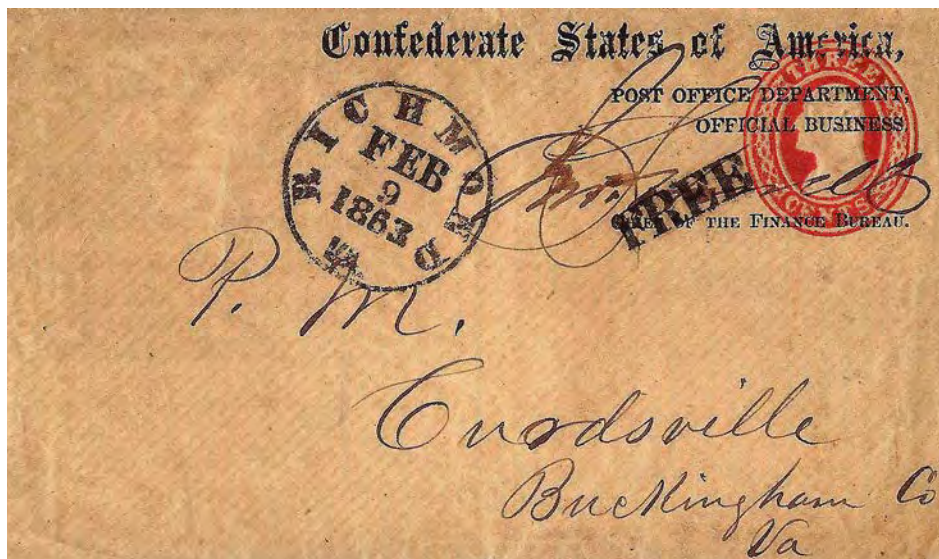 Confederate States of America,
POST OFFICE DEPARTMENT,
OFFICIAL BUSINESS.
THREE
CENTS
RICHMOND
FEB
9
1863
VA
FREE
OF THE FINANCE BUREAU.
P. M.
Curdsville
Buckingham Co
Va